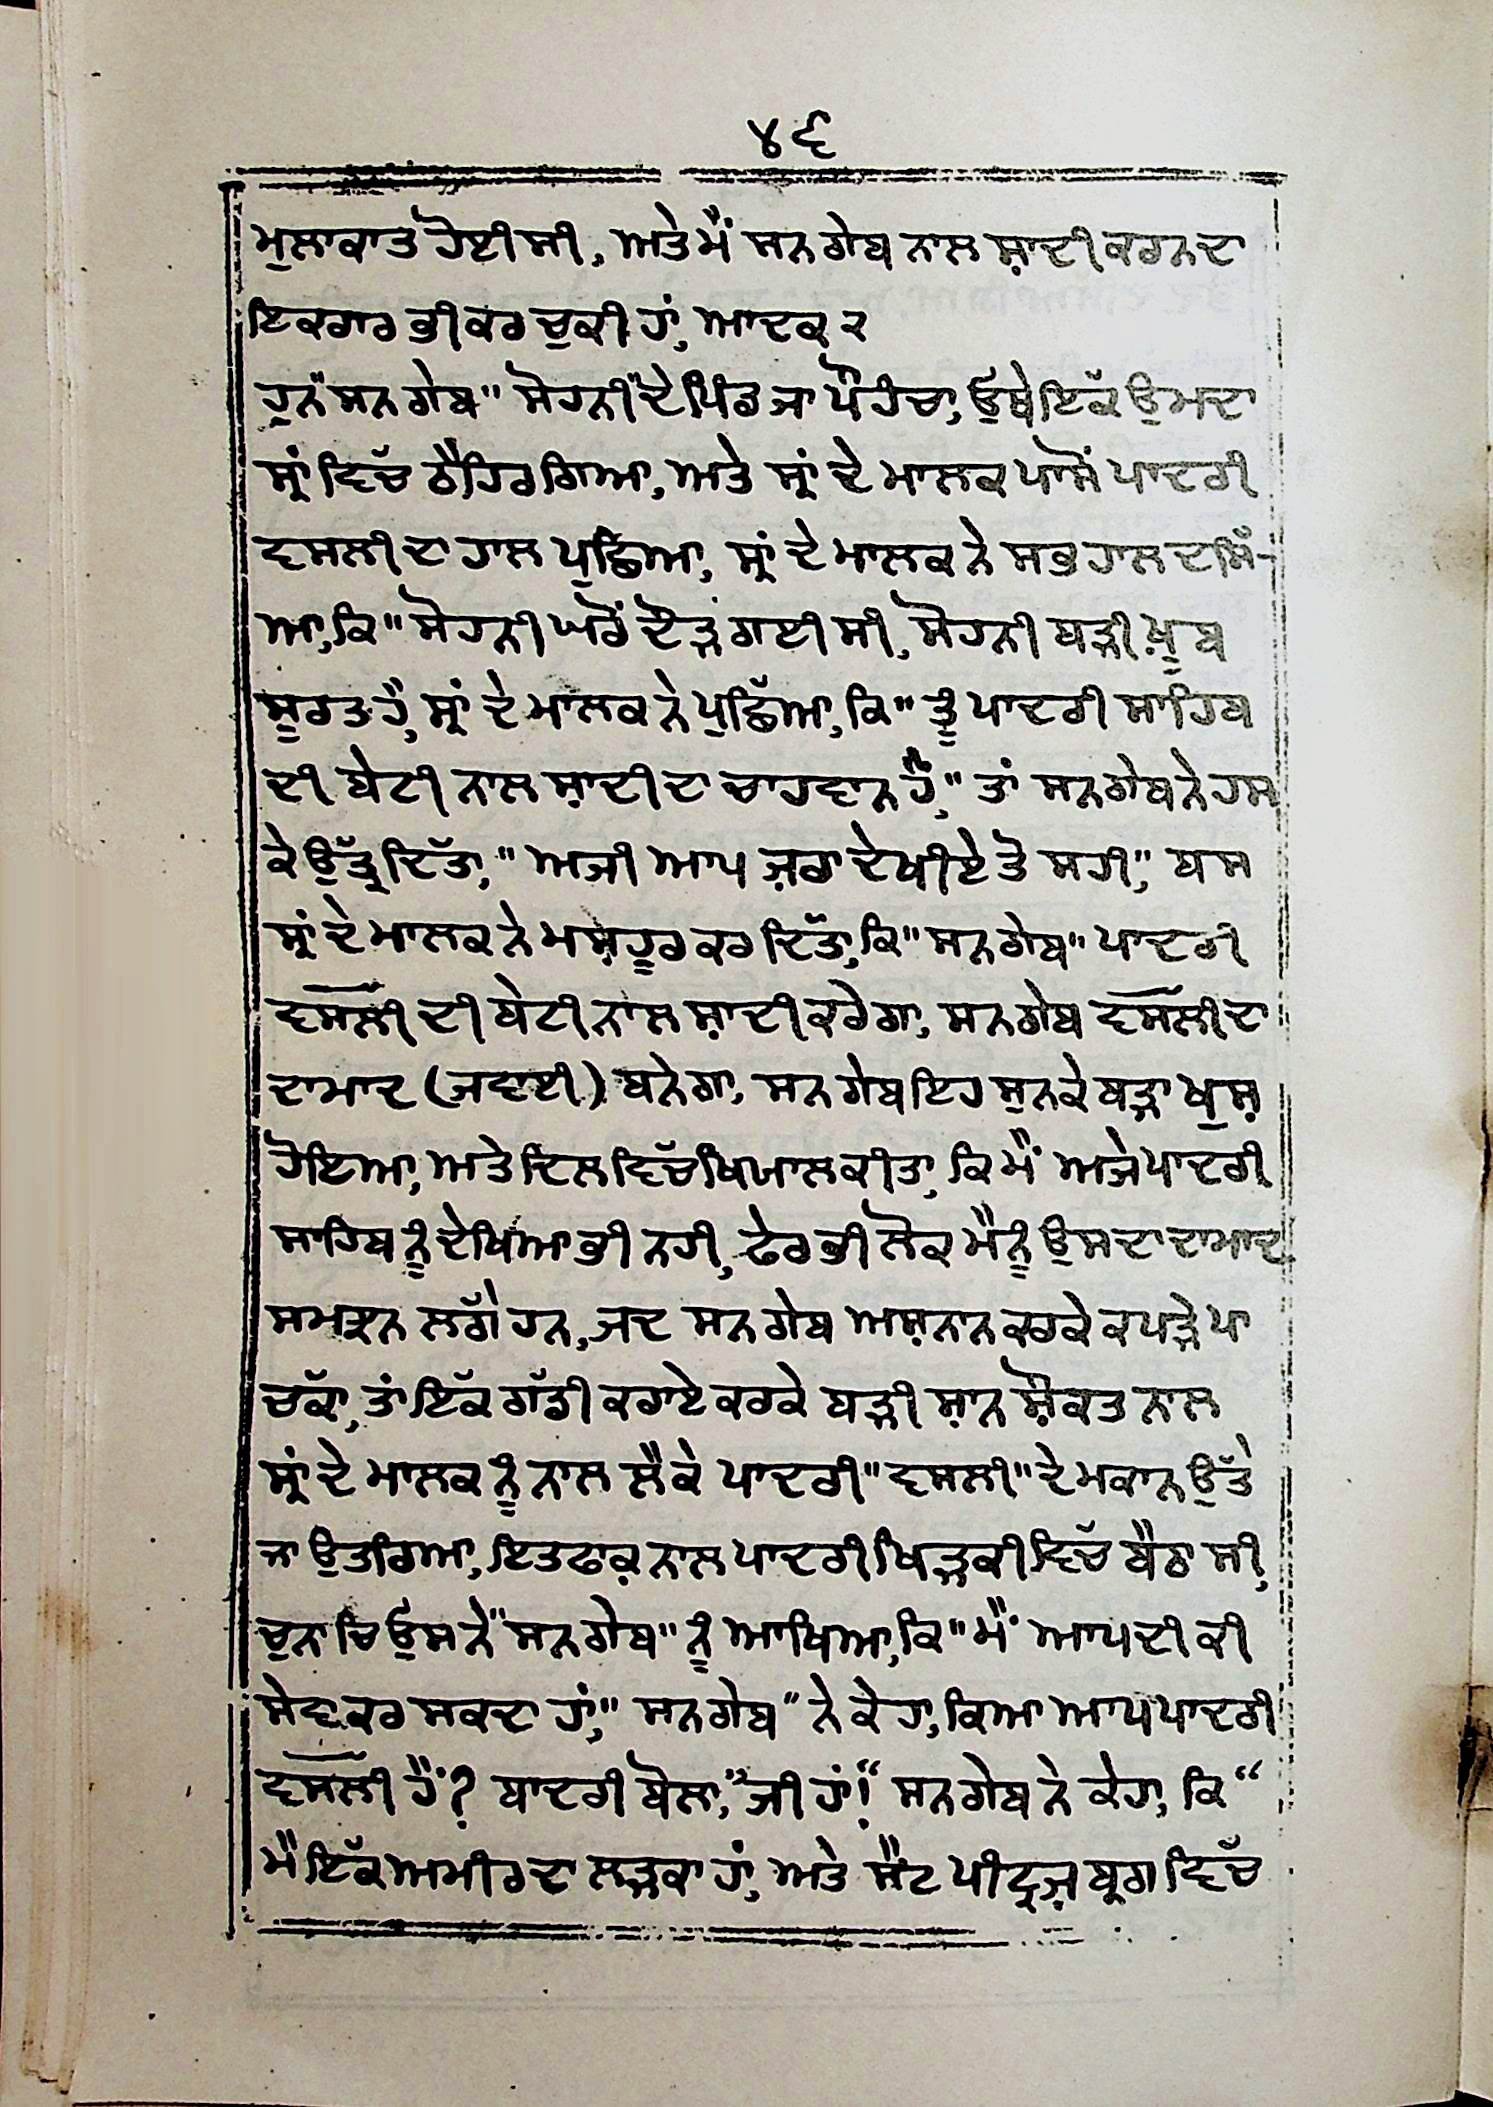 ੪੬
ਮੁਲਾਕਾਤ ਹੋਈ ਸੀ, ਅਤੇ ਮੈਂ ਸਨਗੇਬ ਨਾਲ ਸ਼ਾਦੀ ਕਰਨ ਦਾ
ਇਕਰਾਰ ਭੀ ਕਰ ਚੁਕੀ ਹਾਂ, ਆਦਕ ੨
ਹੁਨ "ਸਨਗੇਬ" ਸੋਹਨੀ" ਦੇ ਪਿੰਡ ਜਾ ਪੌਹੰਚਾ, ਓੁਥੇ ਇੱਕ ਉਮਦਾ
ਸ੍ਰਾਂ ਵਿੱਚ ਠੈਹਿਰ ਗਿਆ, ਅਤੇ ਸ੍ਰਾਂ ਦੇ ਮਾਲਕ ਪਾਸੋਂ ਪਾਦਰੀ
ਵਸਲੀ ਦਾ ਹਾਲ ਪੁਛਿਆ, ਸ੍ਰਾਂ ਦੇ ਮਾਲਕ ਨੇ ਸਭ ਹਾਲ ਦਸਿੱ-
ਆ, ਕਿ "ਸੋਹਨੀ ਘਰੋਂ ਦੌੜ ਗਈ ਸੀ, ਸੋਹਨੀ ਬੜੀ ਖ਼ੂਬ
ਸੂਰਤ ਹੈ, ਸ੍ਰਾਂ ਦੇ ਮਾਲਕ ਨੇ ਪੁਛਿੱਆ, ਕਿ "ਤੂੰ ਪਾਦਰੀ ਸਾਹਿਬ
ਦੀ ਬੇਟੀ ਨਾਲ ਸ਼ਾਦੀ ਦਾ ਚਾਹਵਾਨ ਹੈਂ," ਤਾਂ ਸਨਗੇਬ ਨੇ ਹਸ
ਕੇ ਉੱਤ੍ਰ ਦਿੱਤਾ, "ਅਜੀ ਆਪ ਜ਼ਰਾ ਦੇਖੀਏ ਤੋ ਸਹੀ," ਬਸ
ਸ੍ਰਾਂ ਦੇ ਮਾਲਕ ਨੇ ਮਸ਼ਹੂਰ ਕਰ ਦਿੱਤਾ, ਕਿ "ਸਨਗੇਬ" ਪਾਦਰੀ
ਵਸਲੀ ਦੀ ਬੇਟੀ ਨਾਲ ਸ਼ਾਦੀ ਕਰੇਗਾ, ਸਨਗੇਬ ਵਸਲੀ ਦਾ
ਦਾਮਾਦ (ਜਵਾਈ) ਬਨੇਗਾ, ਸਨਗੇਬ ਇਹ ਸੁਨਕੇ ਬੜਾ ਖੁਸ਼
ਹੋਇਆ, ਅਤੇ ਦਿਲ ਵਿੱਚ ਖਿਯਾਲ ਕੀਤਾ, ਕਿ ਮੈਂ ਅਜੇ ਪਾਦਰੀ
ਸਾਹਿਬ ਨੂੰ ਦੇਖਿਆ ਭੀ ਨਹੀ, ਫੇਰ ਭੀ ਲੋਕ ਮੈਨੂੰ ਉਸਦਾ ਦਾਮਾਦ
ਸਮਝਨ ਲਗੇੱ ਹਨ, ਜਦ ਸਨਗੇਬ ਅਸ਼ਨਾਨ ਕਰਕੇ ਕਪੜੇ ਪਾ
ਚੱਕਾ, ਤਾਂ ਇੱਕ ਗੱਡੀ ਕਰਾਏ ਕਰਕੇ ਬੜੀ ਸ਼ਾਨ ਸ਼ੌਕਤ ਨਾਲ
ਸ੍ਰਾਂ ਦੇ ਮਾਲਕ ਨੂੰ ਨਾਲ ਲੈਕੇ ਪਾਦਰੀ "ਵਸਲੀ" ਦੇ ਮਕਾਨ ਉੱਤੇ
ਜਾ ਉਤਰਿਆ, ਇਤਫਾਕ਼ ਨਾਲ ਪਾਦਰੀ ਖਿੜਕੀ ਵਿੱਚ ਬੈਠਾ ਸੀ,
ਚੁਨਾਚਿ ਓੁਸਨੇ "ਸਨਗੇਬ" ਨੂੰ ਆਖਿਆ, ਕਿ "ਮੈਂ ਆਪਦੀ ਕੀ
ਸੇਵਾ ਕਰ ਸਕਦਾ ਹਾਂ," ਸਨਗੇਬ" ਨੇ ਕੇਹਾ, ਕਿਆ ਆਪ ਪਾਦਰੀ
ਵਸਲੀ ਹੈਂ? ਬਾਦਰੀ ਬੋਲਾ, "ਜੀ ਹਾਂ!" ਸਨਗੇਬ ਨੇ ਕੇਹਾ, ਕਿ "
ਮੈਂ ਇੱਕ ਅਮੀਰ ਦਾ ਲੜਕਾ ਹਾਂ, ਅਤੇ ਸੈਂਟ ਪੀਟ੍ਰਜ਼ ਬ੍ਰਗ ਵਿੱਚ